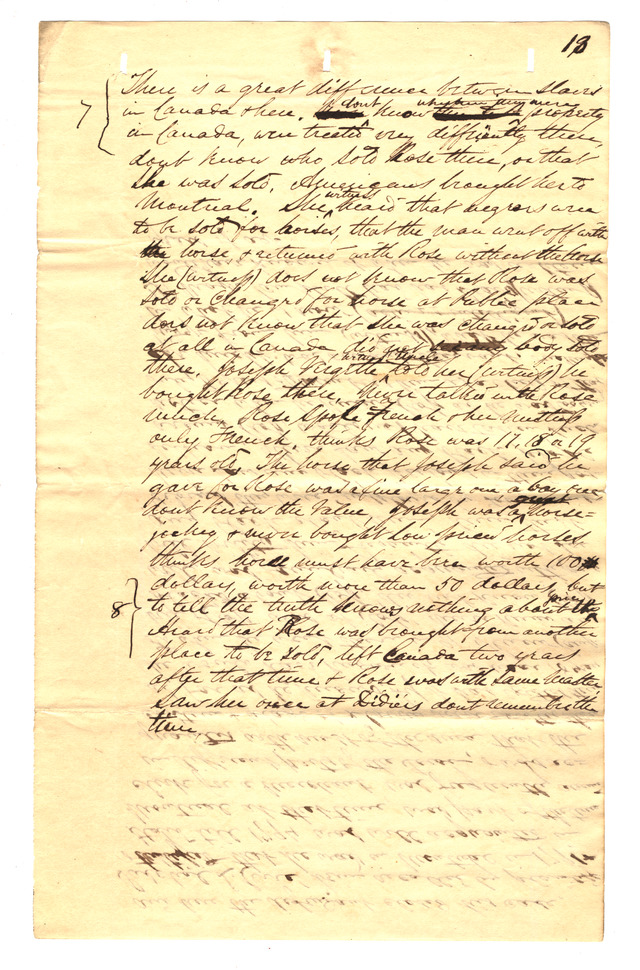 13
7 There is a great difference between slaves
in Canada & here. dont know whether they were property
in Canada, were treated very differently there,
dont know who sold Rose there, or that
she was sold. Americans brought her to
Montreal. She witness heard that negroes were
to be sold for horses, that the man went off with
the horse & returned with Rose without the horse
She (witness) does not know that Rose was
sold or changed for horse at Public place
does not know that she was changed or sold
at all in Canada, did not body sold
there. Joseph told her (witness) he
bought Rose there. Never talked with Rose
much. Rose spoke French & her mistress
only French. thinks Rose was 17, 18 or 19
years old. The horse that Joseph said he
gave for Rose was a fine large one a bay one
dont know the value, Joseph was a great horse-
jockey & never bought low priced horses
thinks horse must have been worth 100
8 dollars, worth more than 50 dollars, but
to tell the truth knows nothing about the price
Heard that Rose was brought from another
place to be sold, left Canada two years
after that time & Rose was with same master
saw her once at Didiers dont remember the
time,